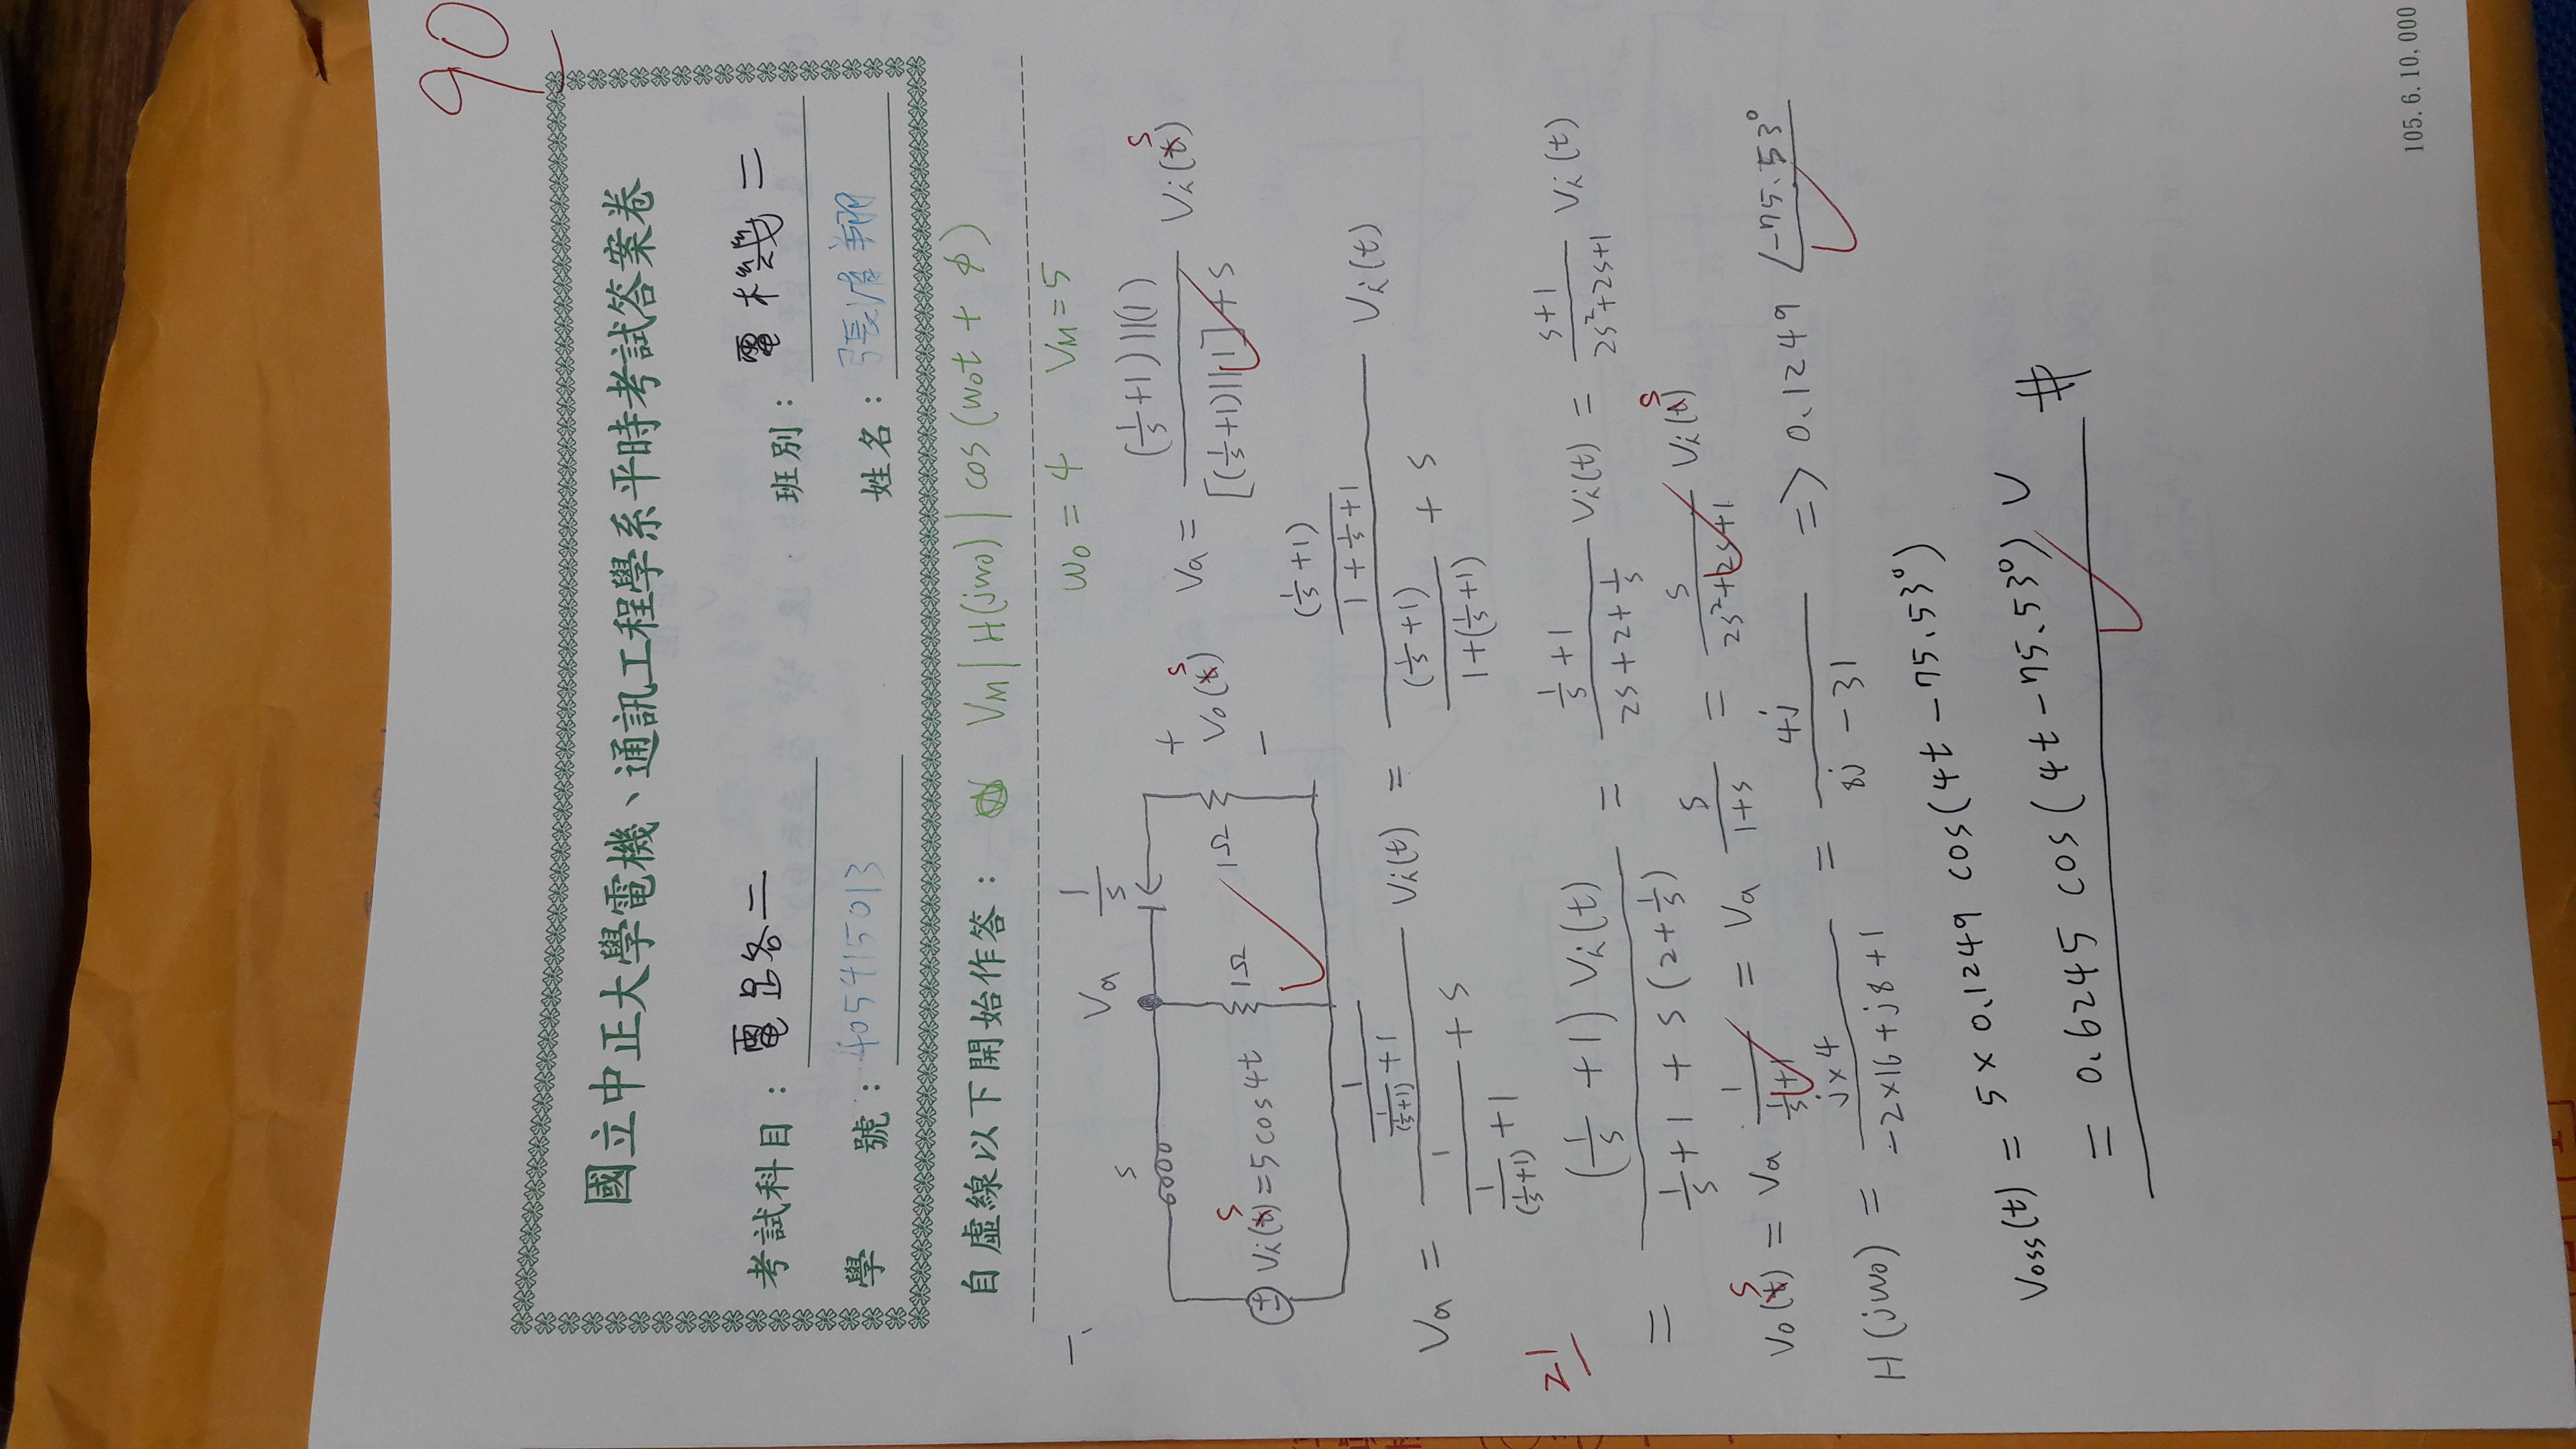 90
國立中正大學電機、通訊工程學系平時考試答案卷
考試科目：電路二
班別：電機二
學 號：405415013
姓名：張清翔
自虛線以下開始作答：
VM|H(jω0)|cos(ω0t + φ)
ω0 = 4 VM = 5
一、
Va 1/s
s
1Ω 1Ω
+ Vo(s) −
Vi(s) = 5cos4t
Va = (1/s+1)||(1) / [(1/s+1)||1]+s Vi(s)
Va = (1/(1/(1/s+1)+1)) / (1/(1/(1/s+1)+1) + s) Vi(t) = ((1/s+1)/(1+1/s+1)) / ((1/s+1)/(1+(1/s+1)) + s) Vi(t)
21
= (1/s+1)Vi(t) / (1/s+1+s(2+1/s)) = (1/s+1)/(2s+2+1/s) Vi(t) = (s+1)/(2s²+2s+1) Vi(t)
Vo(s) = Va 1/(1/s+1) = Va s/(1+s) = s/(2s²+2s+1) Vi(s)
H(jω0) = j×4/(-2×16+j8+1) = 4j/(8j-31) => 0.1249 ∠-75.53°
Voss(t) = 5×0.1249 cos(4t-75.53°)
= 0.6245 cos(4t-75.53°) V #
105.6.10,000